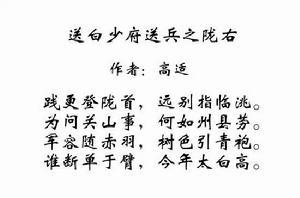 送白少府送兵之陇右
作者：高适
践更登陇首，远别指临洮。
为问关山事，何如州县劳。
军容随赤羽，树色引青袍。
谁断单于臂，今年太白高。